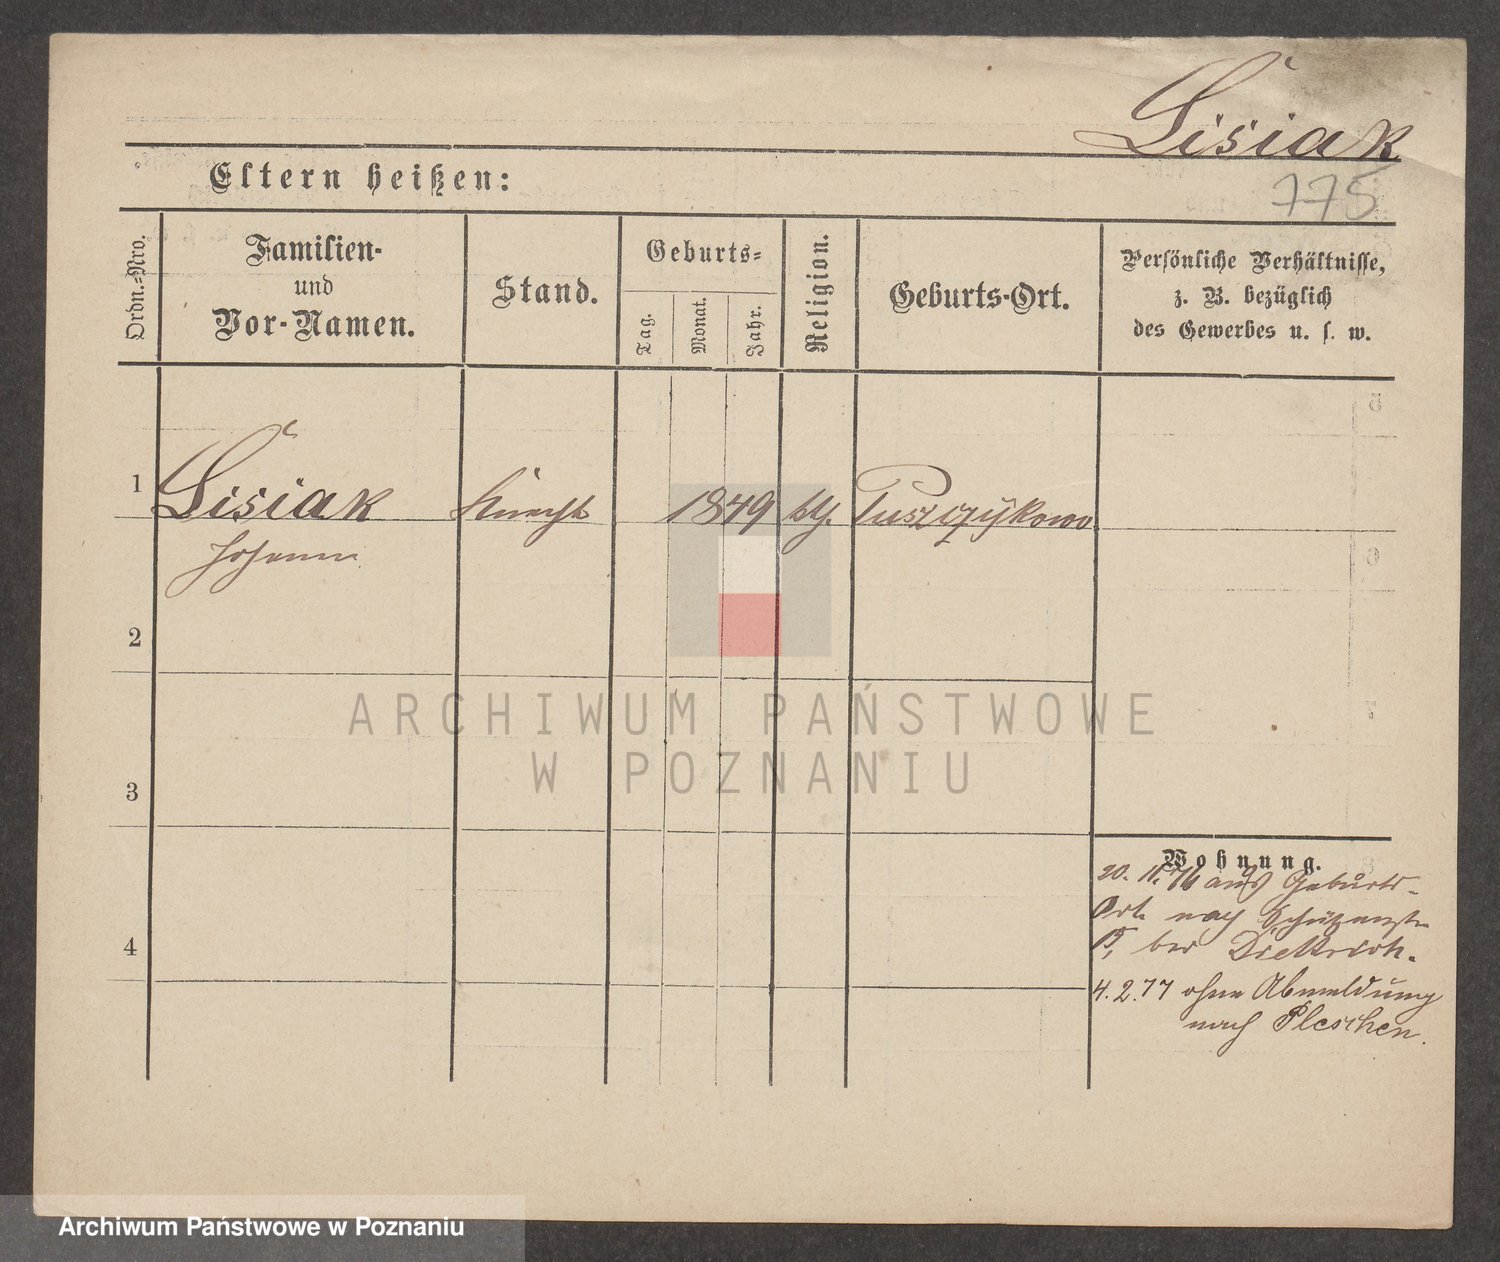 Lisiak
Eltern heißen:
775
Ordn.-Nro.
Familien-
und
Vor-Namen.
Stand.
Geburts-
Tag.
Monat.
Jahr.
Religion.
Geburts-Ort.
Persönliche Verhältnisse,
z. B. bezüglich
des Gewerbes u. s. w.
1
Lisiak Knecht 1849 kth. Puszczÿkowo
Johann
2
ARCHIWUM PAŃSTWOWE
W POZNANIU
3
Wohnung.
20. 11. 76 aus Geburts-
Ort nach Schützenstr
15, bei Dietrich.
4
4. 2. 77 ohne Abmeldung
nach Pleschen.
Archiwum Państwowe w Poznaniu